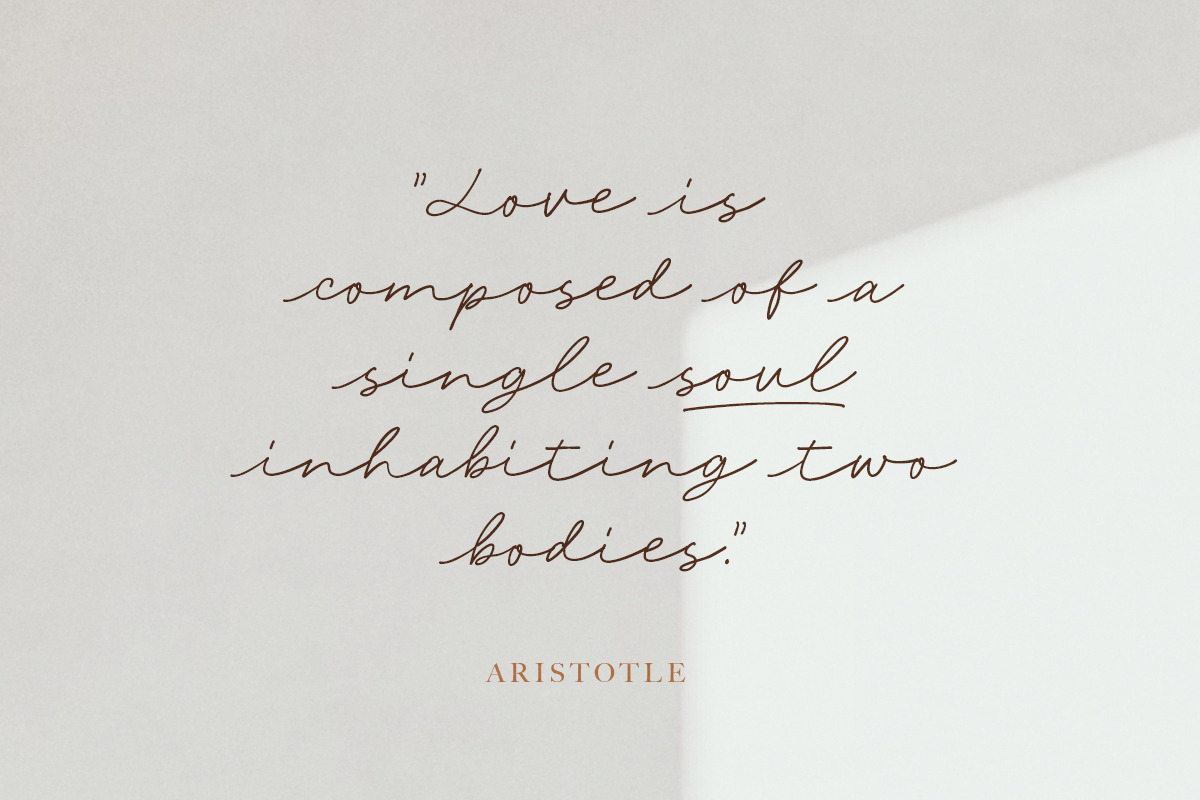 "Love is
composed of a
single soul
inhabiting two
bodies."
ARISTOTLE